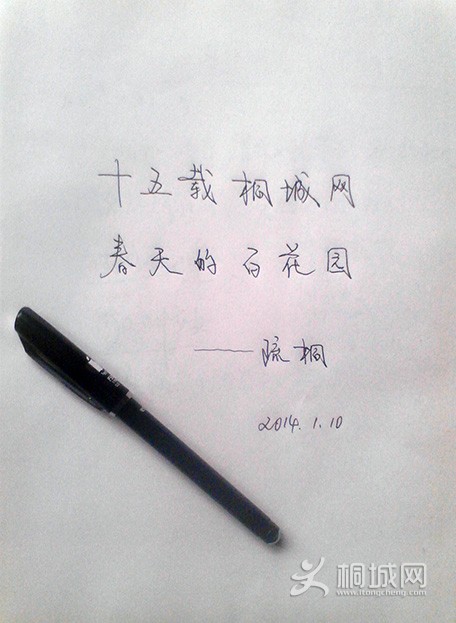 十五载桐城网
春天的百花园
——疏桐
2014.1.10
桐城网
www.itongcheng.com